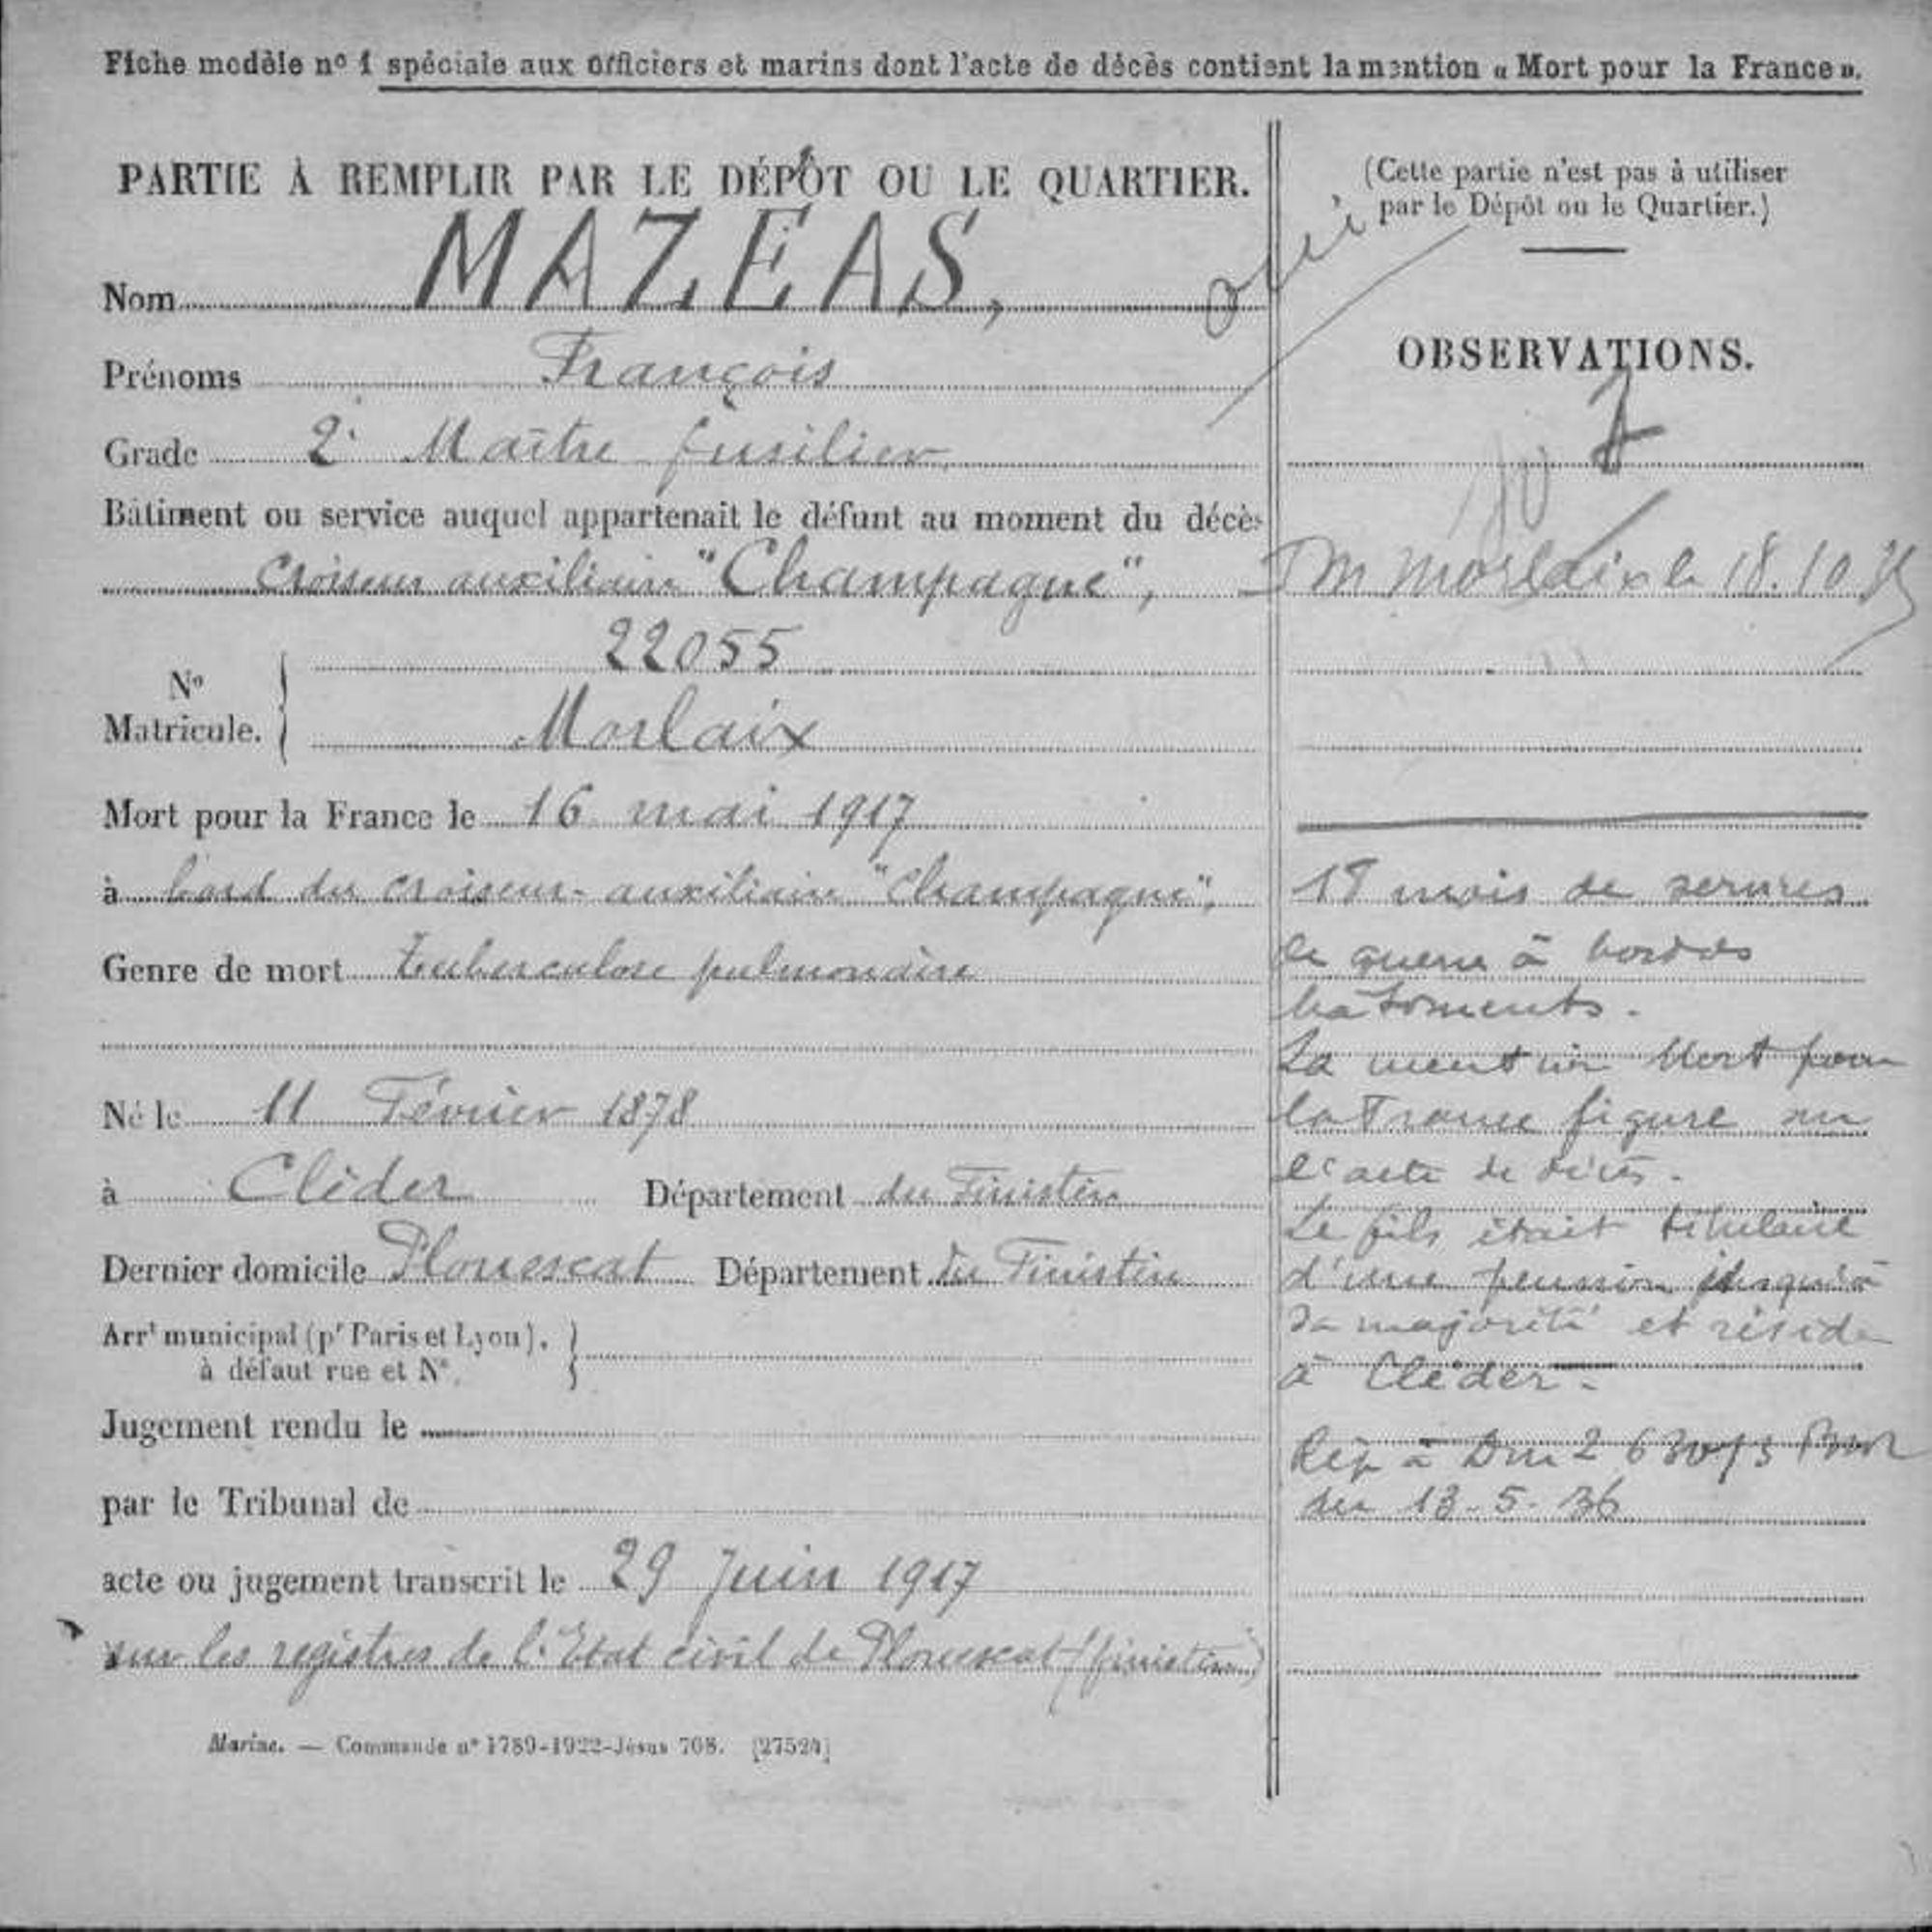 Fiche modèle nº 1 spéciale aux Officiers et marins dont l'acte de décès contient la mention « Mort pour la France ».
PARTIE À REMPLIR PAR LE DÉPÔT OU LE QUARTIER.
Nom MAZEAS,
Prénoms François
Grade 2e Maître fusilier
Bâtiment ou service auquel appartenait le défunt au moment du décès
Croiseur auxiliaire "Champagne",
22055
Nº
Matricule.
Morlaix
Mort pour la France le 16 mai 1917
à bord du croiseur-auxiliaire "Champagne",
Genre de mort tuberculose pulmonaire
Né le 11 Février 1878
à Cléder Département du Finistère
Dernier domicile Plouescat Département du Finistère
Arrt municipal (pr Paris et Lyon),
à défaut rue et Nº.
Jugement rendu le
par le Tribunal de
acte ou jugement transcrit le 29 Juin 1917
sur les registres de l'Etat civil de Plouescat (finistère)
Marine. — Commande nº 1789-1922-Jésus 708. [27524]
(Cette partie n'est pas à utiliser
par le Dépôt ou le Quartier.)
OBSERVATIONS.
Morlaix le 18.10
18 mois de services
de guerre à bord des
bâtiments.
La mention Mort pour
la France figure sur
l'acte de décès.
Le fils était titulaire
d'une pension jusqu'à
sa majorité et réside
à Cléder.
Rép à Dm 2
du 13-5-36